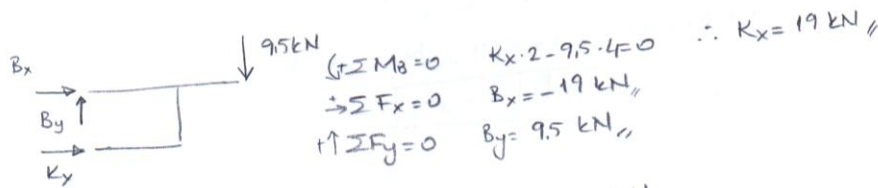 9,5kN
Bx
By
Kx
(+ΣMB=0 Kx·2-9,5·4=0 ∴ Kx= 19 kN //
+→ΣFx=0 Bx=-19 kN //
+↑ΣFy=0 By= 9,5 kN //